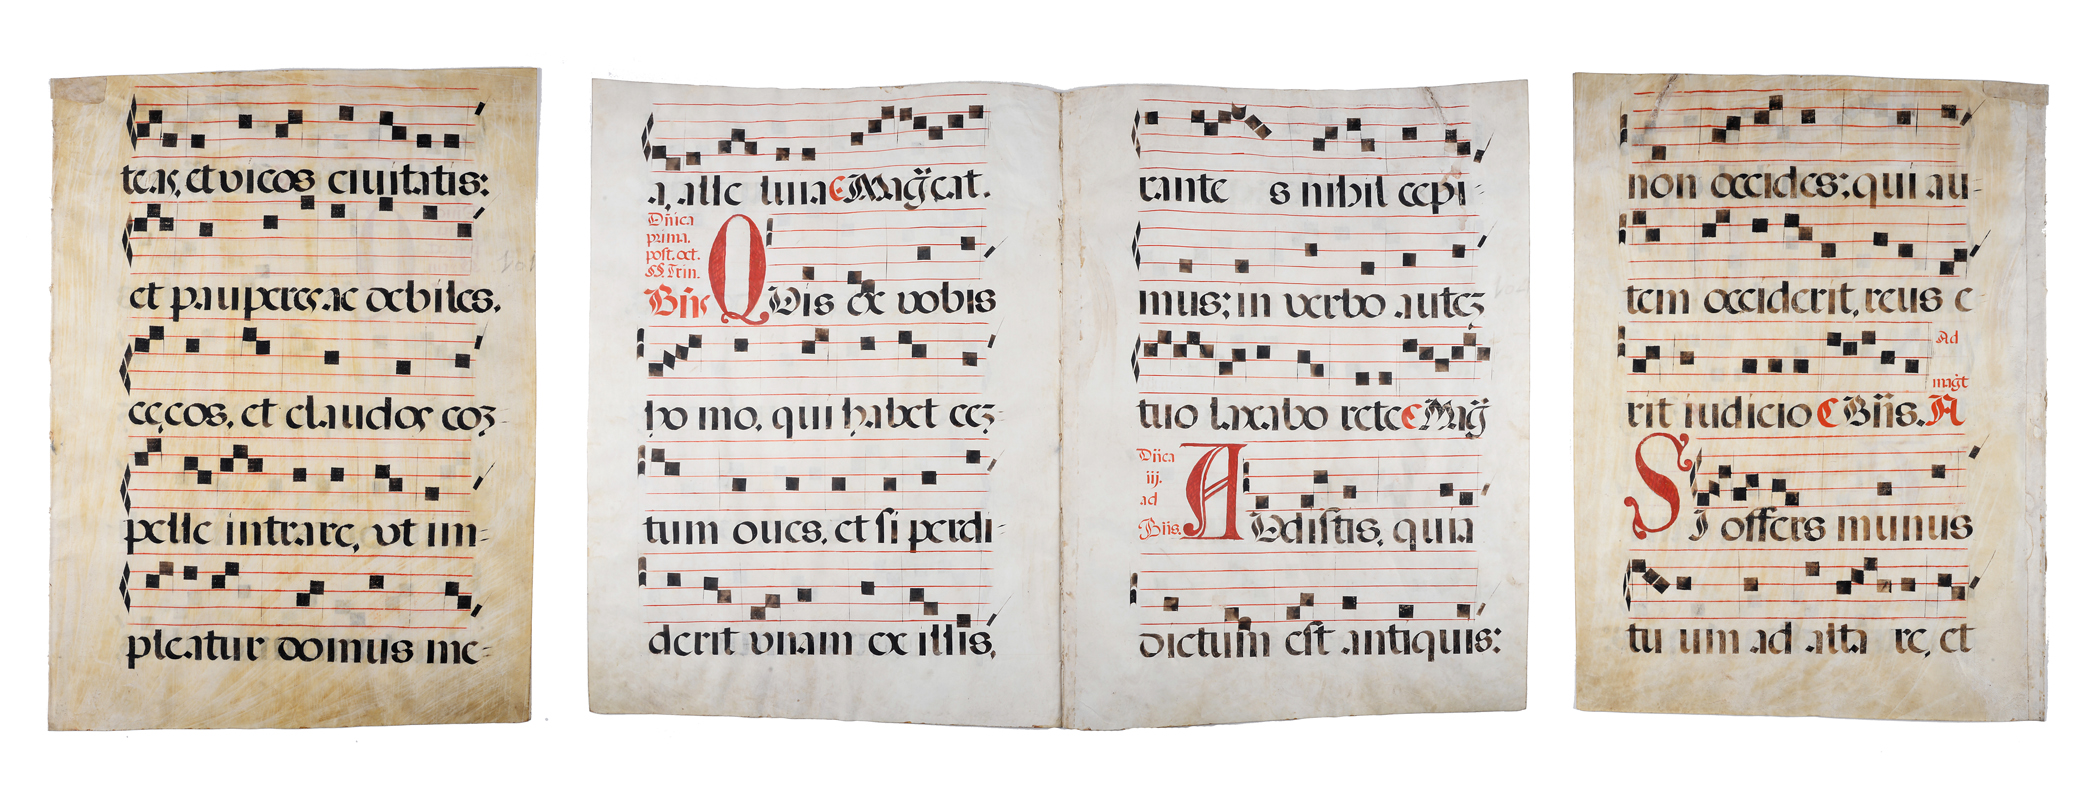 teas, et vicos ciuitatis:
et pauperes ac debiles,
cęcos, et claudos coʒ-
pelle intrare, vt im-
pleatur domus me-
a, alle luiaE Mag̃cat.
Dñica
prima.
post. oct.
SS. Trin.
Bñs QVis ex vobis
ho mo, qui habet ceʒ-
tum oues, et si perdi-
derit vnam ex illis,
rante s nihil cepi-
mus; in verbo auteʒ
tuo laxabo reteE Mag̃
Dñca
iij.
ad
Bñs. AVdistis, quia
dictum est antiquis:
non occides; qui au-
tem occiderit, reus e-
Ad
mag̃t
rit iudicioE Bñs. A
SI offers munus
tu um ad alta re, et